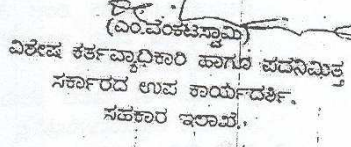 (ಎಂ.ವೆಂಕಟಸ್ವಾಮಿ)
ವಿಶೇಷ ಕರ್ತವ್ಯಾಧಿಕಾರಿ ಹಾಗೂ ಪದನಿಮಿತ್ತ
ಸರ್ಕಾರದ ಉಪ ಕಾರ್ಯದರ್ಶಿ,
ಸಹಕಾರ ಇಲಾಖೆ.